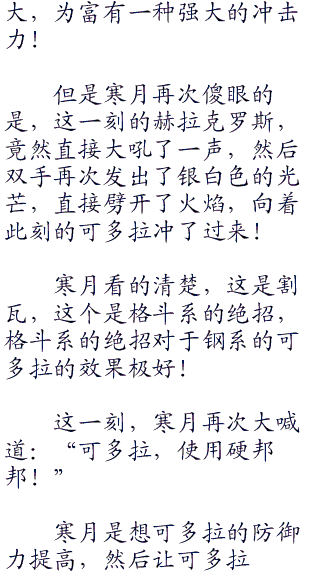 大，为富有一种强大的冲击
力！
但是寒月再次傻眼的
是，这一刻的赫拉克罗斯，
竟然直接大吼了一声，然后
双手再次发出了银白色的光
芒，直接劈开了火焰，向着
此刻的可多拉冲了过来！
寒月看的清楚，这是割
瓦，这个是格斗系的绝招，
格斗系的绝招对于钢系的可
多拉的效果极好！
这一刻，寒月再次大喊
道：“可多拉，使用硬邦
邦！”
寒月是想可多拉的防御
力提高，然后让可多拉